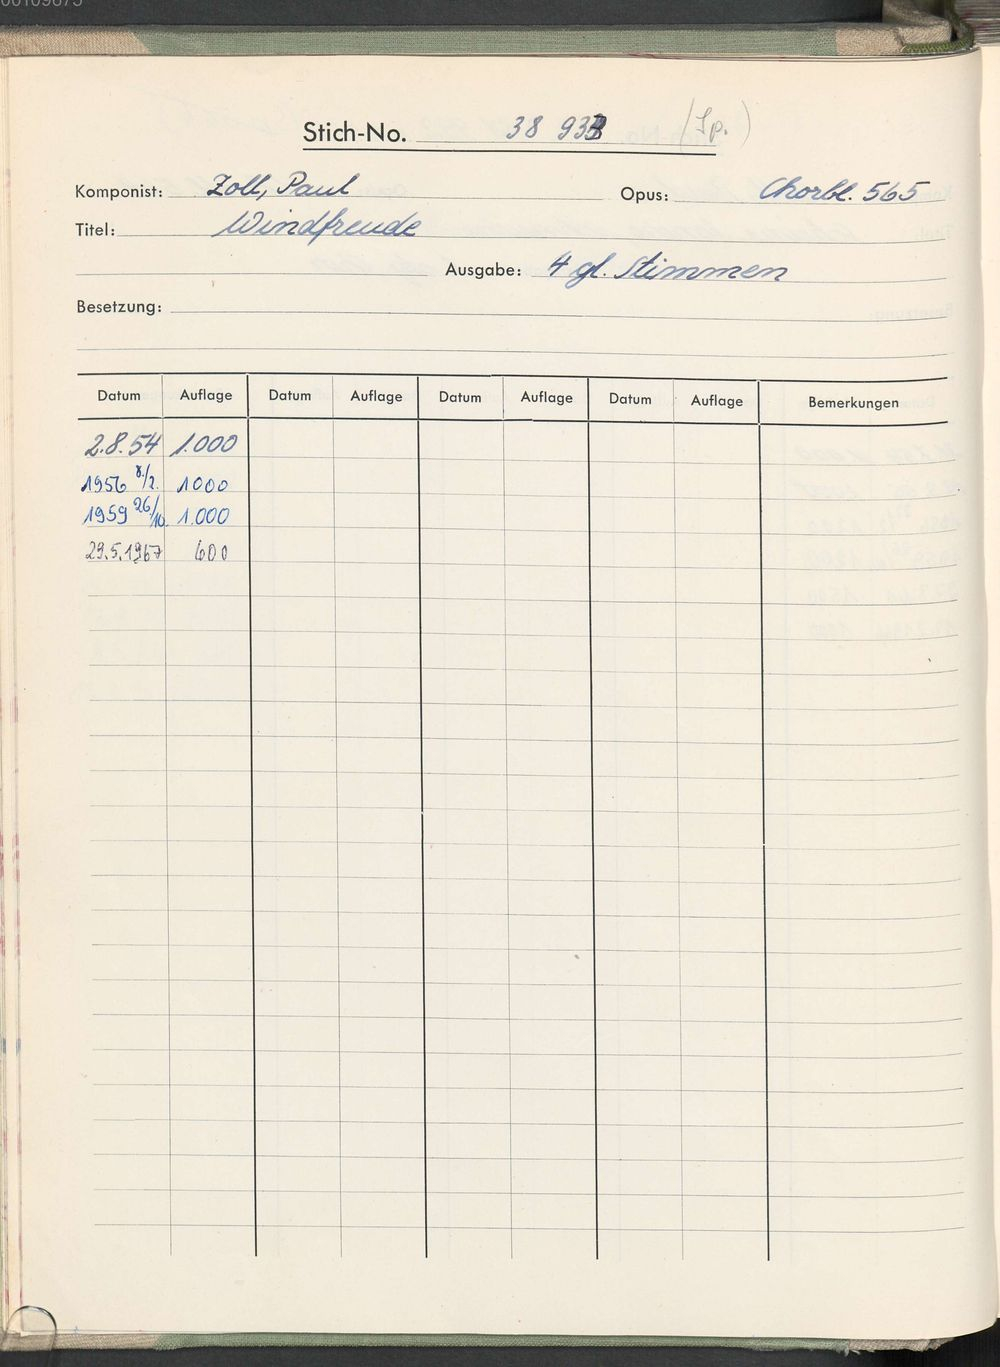 Stich-No. 38 933 (Sp.)
Komponist: Zoll, Paul Opus: Chorbl. 565
Titel: Windfreude
Ausgabe: 4 gl. Stimmen
Besetzung:
Datum Auflage Datum Auflage Datum Auflage Datum Auflage Bemerkungen
2.8.54 1.000
1956 8./2. 1000
1959 26/10. 1.000
29.5.1967 600